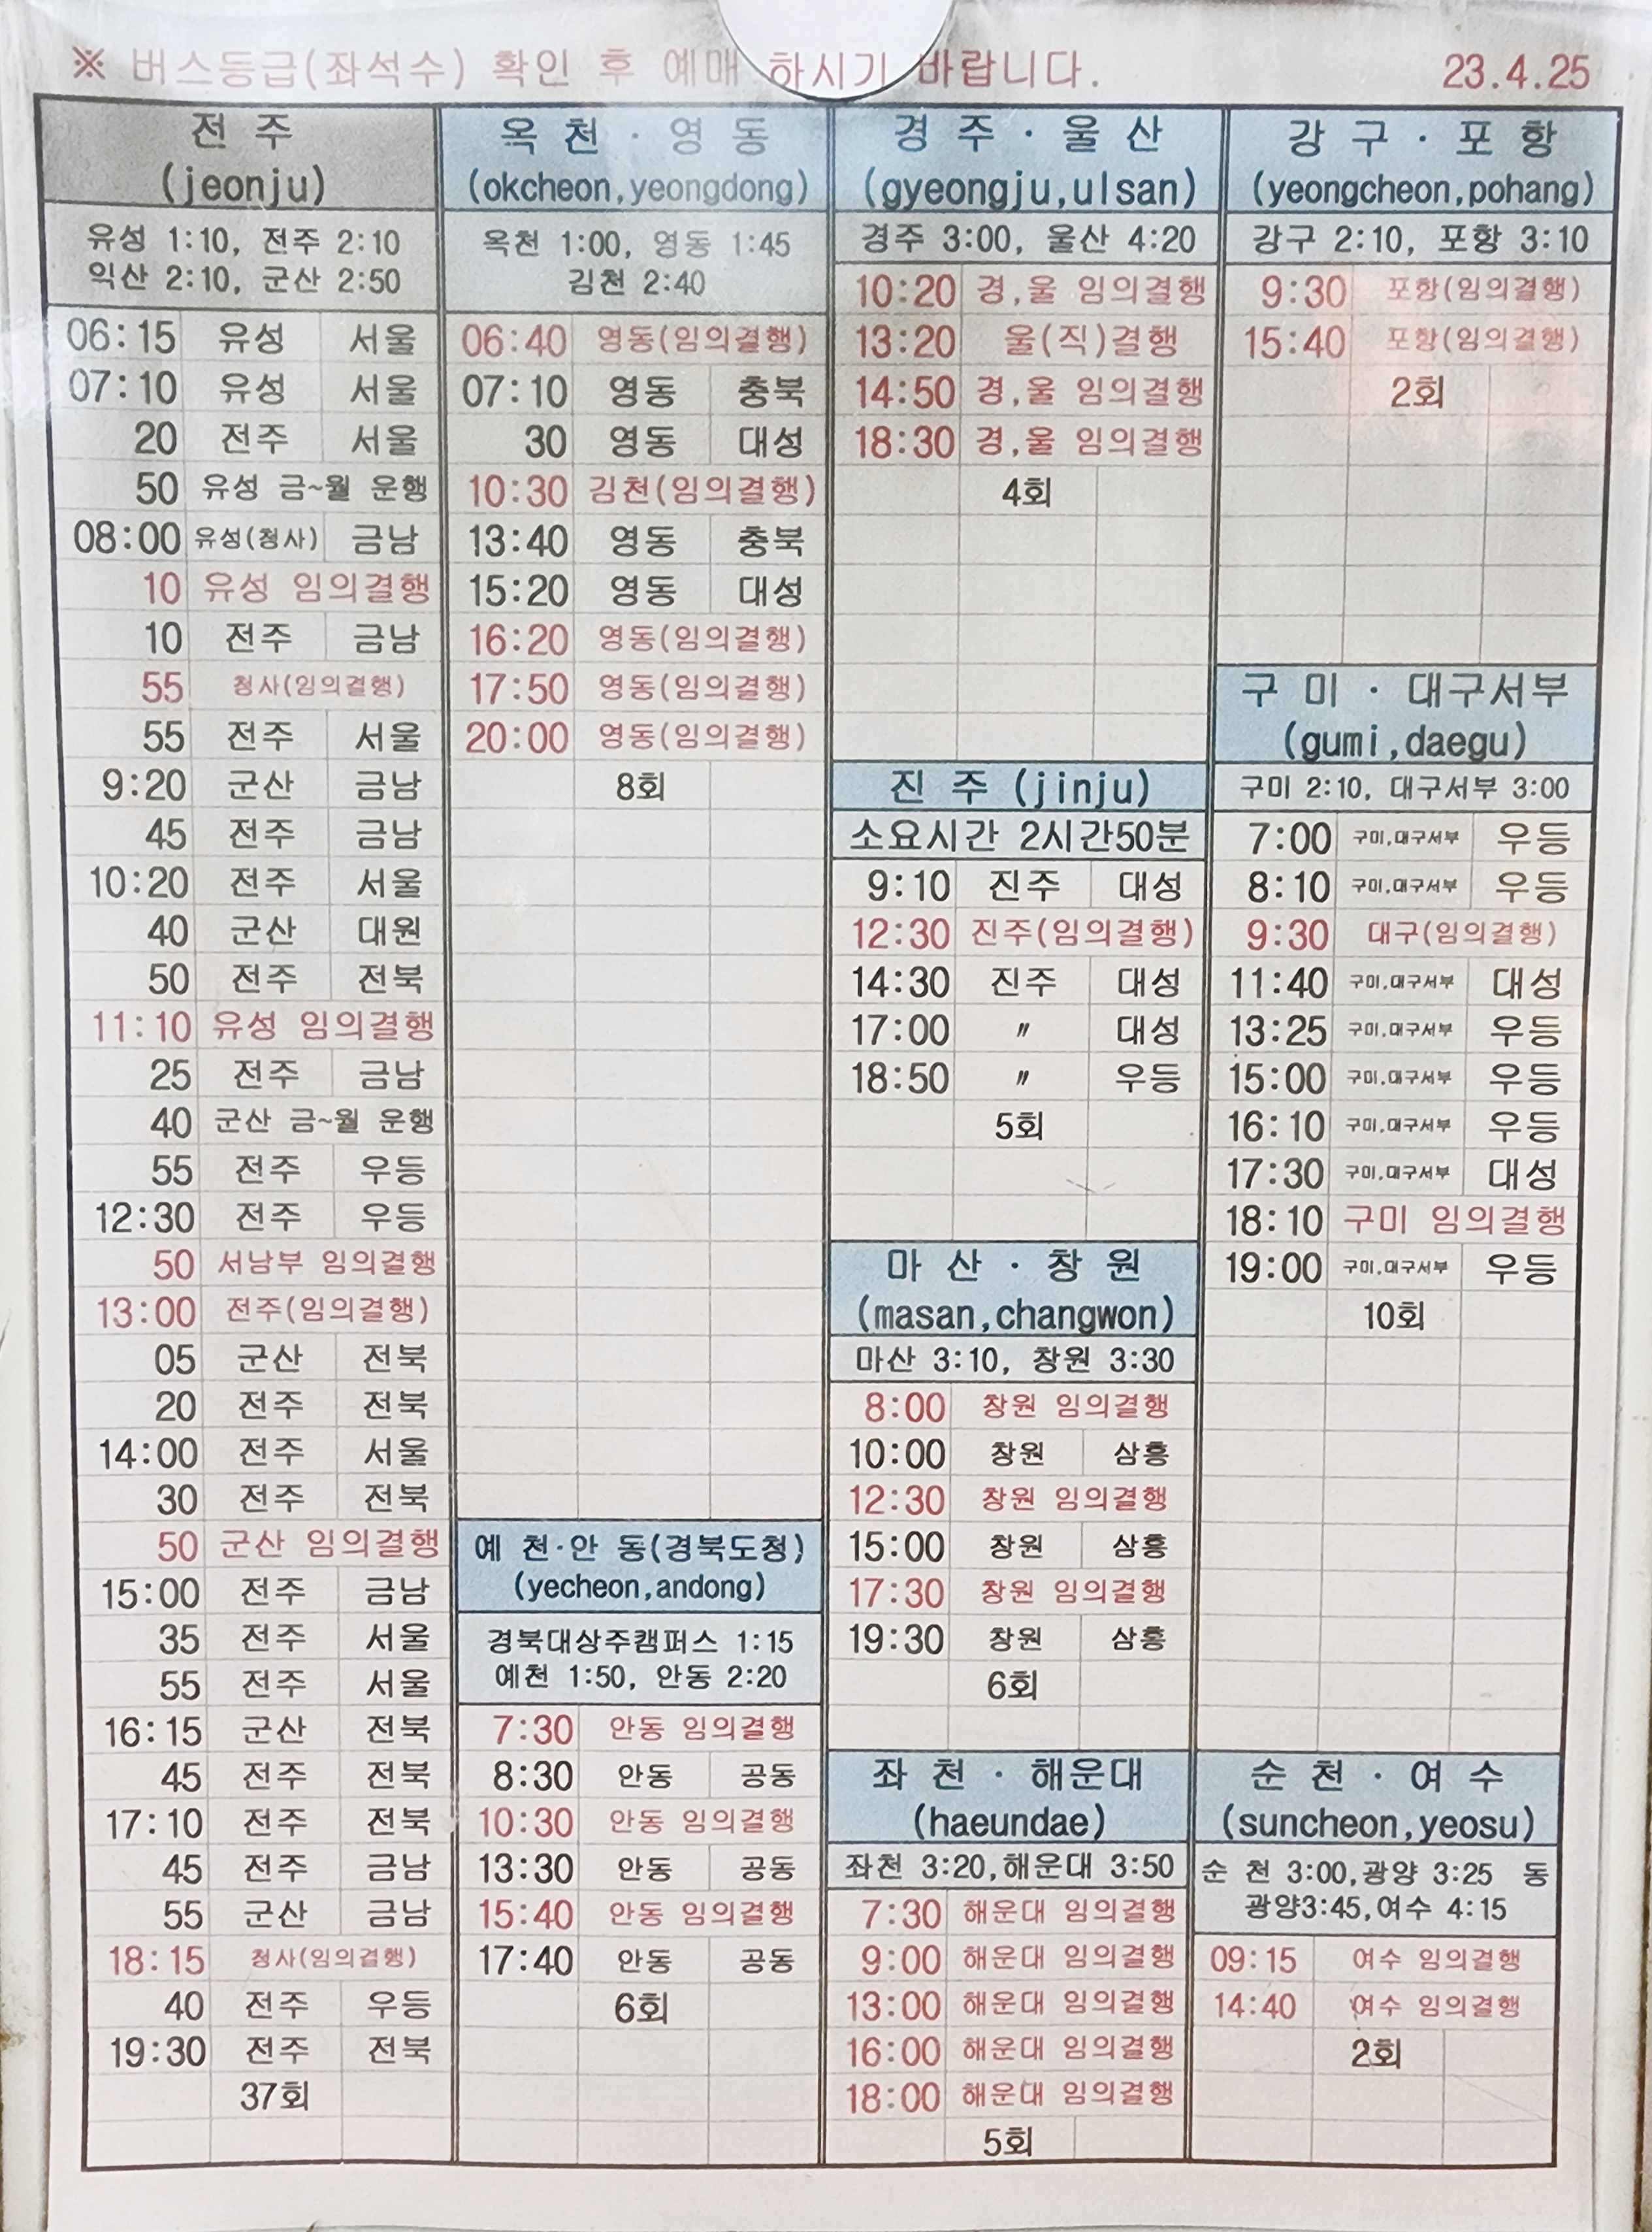 ※ 버스등급(좌석수) 확인 후 예매 하시기 바랍니다.
23.4.25
전 주
(jeonju)
유성 1:10, 전주 2:10
익산 2:10, 군산 2:50
06:15 유성 서울
07:10 유성 서울
20 전주 서울
50 유성 금~월 운행
08:00 유성(청사) 금남
10 유성 임의결행
10 전주 금남
55 청사(임의결행)
55 전주 서울
9:20 군산 금남
45 전주 금남
10:20 전주 서울
40 군산 대원
50 전주 전북
11:10 유성 임의결행
25 전주 금남
40 군산 금~월 운행
55 전주 우등
12:30 전주 우등
50 서남부 임의결행
13:00 전주(임의결행)
05 군산 전북
20 전주 전북
14:00 전주 서울
30 전주 전북
50 군산 임의결행
15:00 전주 금남
35 전주 서울
55 전주 서울
16:15 군산 전북
45 전주 전북
17:10 전주 전북
45 전주 금남
55 군산 금남
18:15 청사(임의결행)
40 전주 우등
19:30 전주 전북
37회
옥 천 · 영 동
(okcheon,yeongdong)
옥천 1:00, 영동 1:45
김천 2:40
06:40 영동(임의결행)
07:10 영동 충북
30 영동 대성
10:30 김천(임의결행)
13:40 영동 충북
15:20 영동 대성
16:20 영동(임의결행)
17:50 영동(임의결행)
20:00 영동(임의결행)
8회
예 천·안 동(경북도청)
(yecheon,andong)
경북대상주캠퍼스 1:15
예천 1:50, 안동 2:20
7:30 안동 임의결행
8:30 안동 공동
10:30 안동 임의결행
13:30 안동 공동
15:40 안동 임의결행
17:40 안동 공동
6회
경 주 · 울 산
(gyeongju,ulsan)
경주 3:00, 울산 4:20
10:20 경,울 임의결행
13:20 울(직)결행
14:50 경,울 임의결행
18:30 경,울 임의결행
4회
진 주 (jinju)
소요시간 2시간50분
9:10 진주 대성
12:30 진주(임의결행)
14:30 진주 대성
17:00 〃 대성
18:50 〃 우등
5회
마 산 · 창 원
(masan,changwon)
마산 3:10, 창원 3:30
8:00 창원 임의결행
10:00 창원 삼흥
12:30 창원 임의결행
15:00 창원 삼흥
17:30 창원 임의결행
19:30 창원 삼흥
6회
좌 천 · 해운대
(haeundae)
좌천 3:20,해운대 3:50
7:30 해운대 임의결행
9:00 해운대 임의결행
13:00 해운대 임의결행
16:00 해운대 임의결행
18:00 해운대 임의결행
5회
강 구 · 포 항
(yeongcheon,pohang)
강구 2:10, 포항 3:10
9:30 포항(임의결행)
15:40 포항(임의결행)
2회
구 미 · 대구서부
(gumi,daegu)
구미 2:10, 대구서부 3:00
7:00 구미,대구서부 우등
8:10 구미,대구서부 우등
9:30 대구(임의결행)
11:40 구미,대구서부 대성
13:25 구미,대구서부 우등
15:00 구미,대구서부 우등
16:10 구미,대구서부 우등
17:30 구미,대구서부 대성
18:10 구미 임의결행
19:00 구미,대구서부 우등
10회
순 천 · 여 수
(suncheon,yeosu)
순 천 3:00,광양 3:25 동
광양3:45,여수 4:15
09:15 여수 임의결행
14:40 여수 임의결행
2회